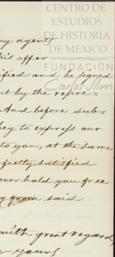 CENTRO DE
ESTUDIOS
DE HISTORIA
DE MEXICO
FUNDACIÓN
Carlos Slim
my agents
his offer
ified and he signed
t by the repre=
And before sub=
hey to express our
to you, at the same
fectly satisfied
ever hold you free
from said
with great regard,
yours